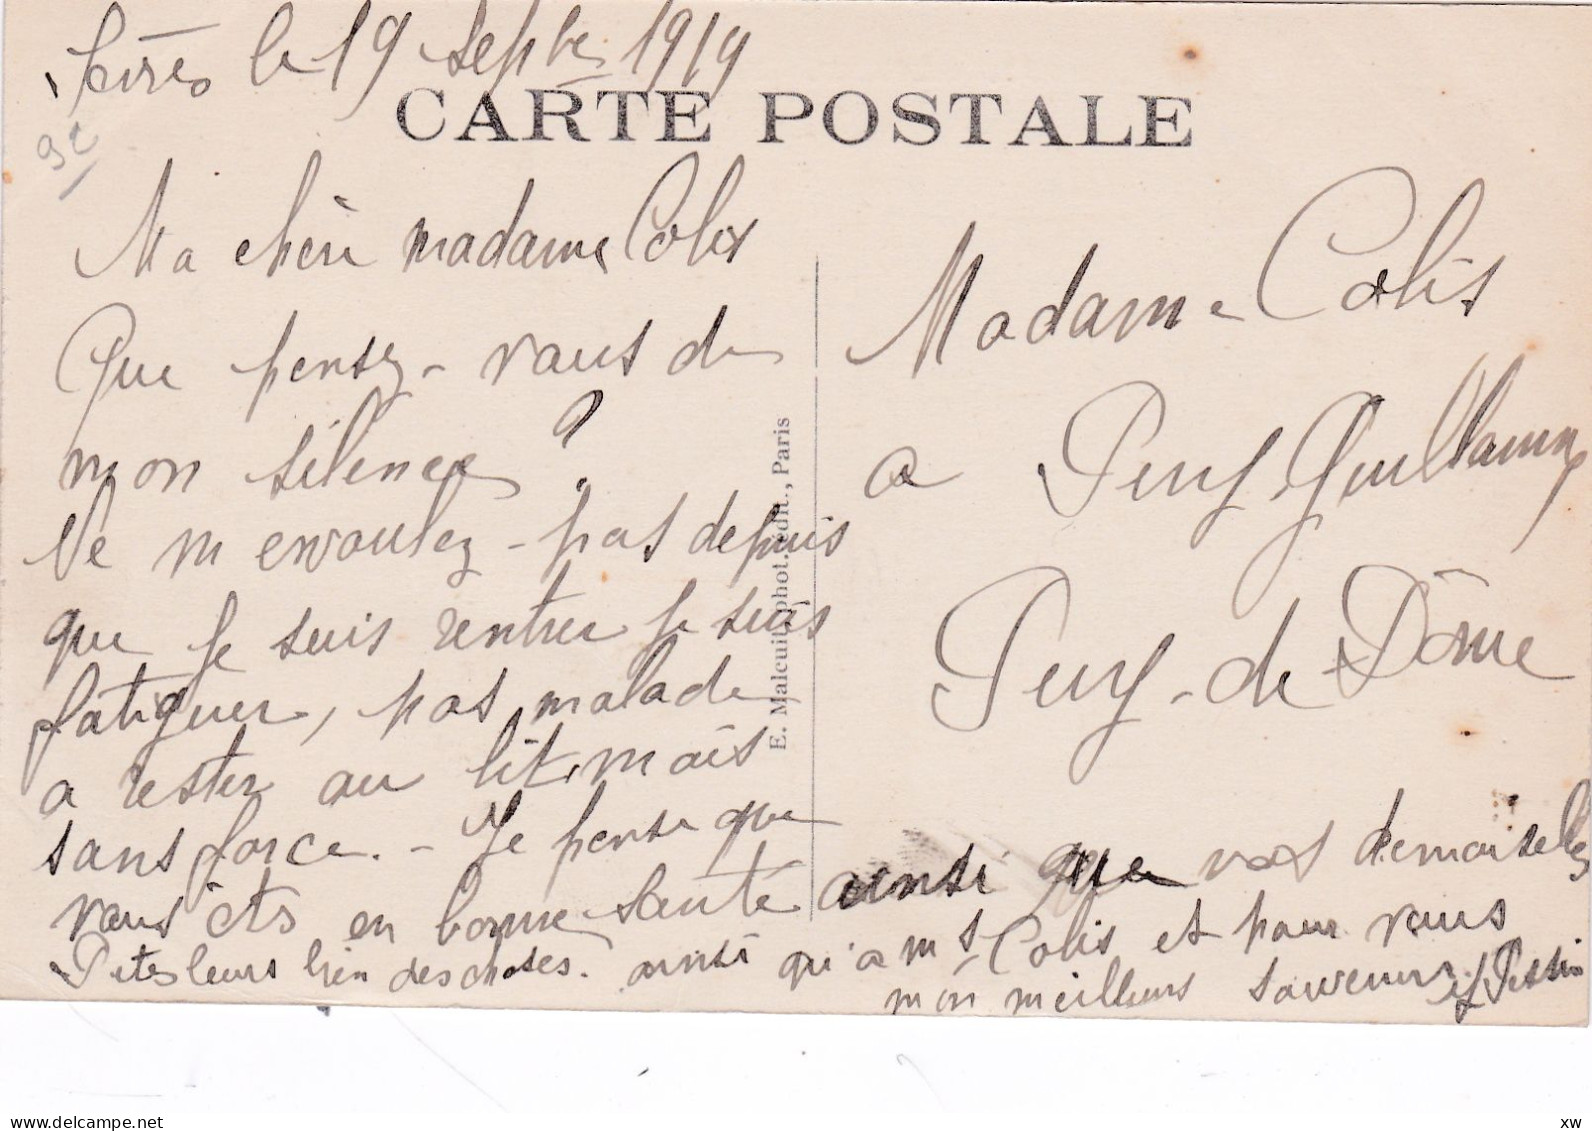 le 19 Septbre 1919
CARTE POSTALE
92
Ma chère madame Colis
Que pensez-vous de
mon silence ?
Ne m envoulez-pas depuis
que je suis rentrer je suis
fatiguer, pas malade
a rester au lit mais
sans force. - Je pense que
vous ets en bonne santé ainsi que vos demoiselles
Dites leurs bien des choses. ainsi qu'a Mr Colis et pour vous
mon meilleurs souvenirs
Madame Colis
a Puy Guillaume
Puy-de-Dôme
E. Malcuit, phot.-édit., Paris
delcampe.net
xw